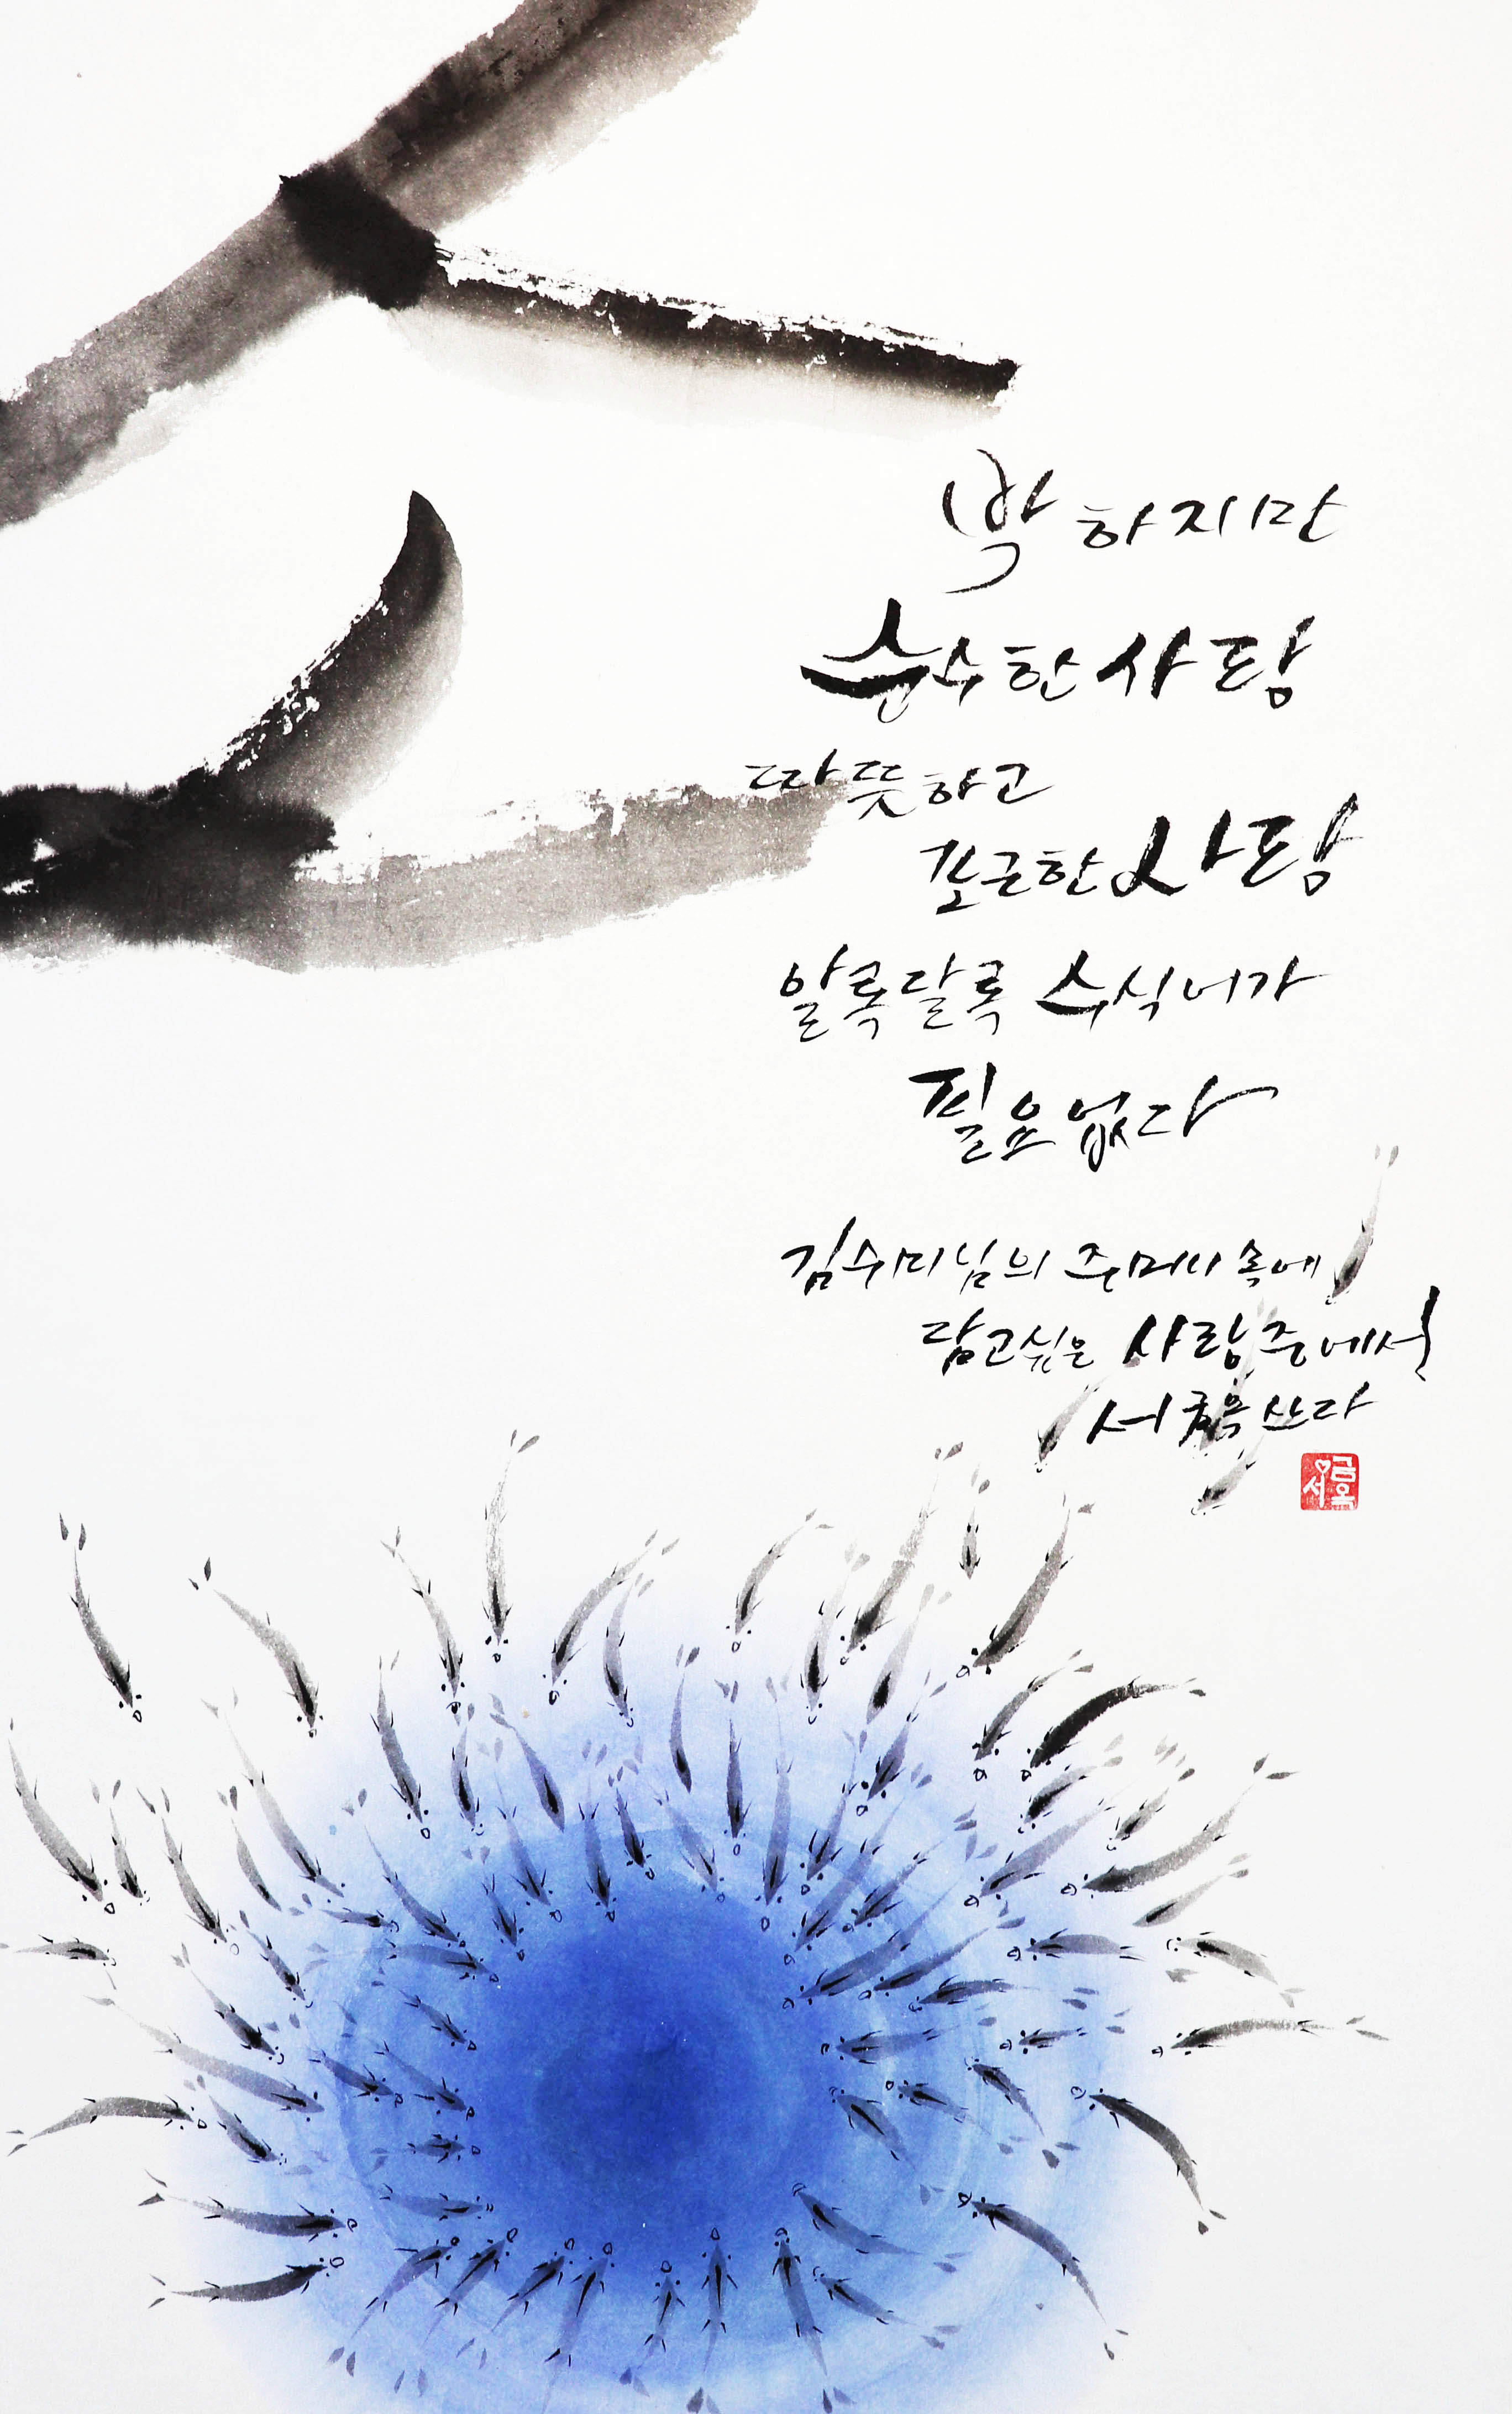 소
박하지만
순수한 사랑
따뜻하고
포근한 사랑
알록달록 수식어가
필요없다
김수미님의 주머니 속에
담고싶은 사랑 중에서
서금옥 쓰다
서금옥